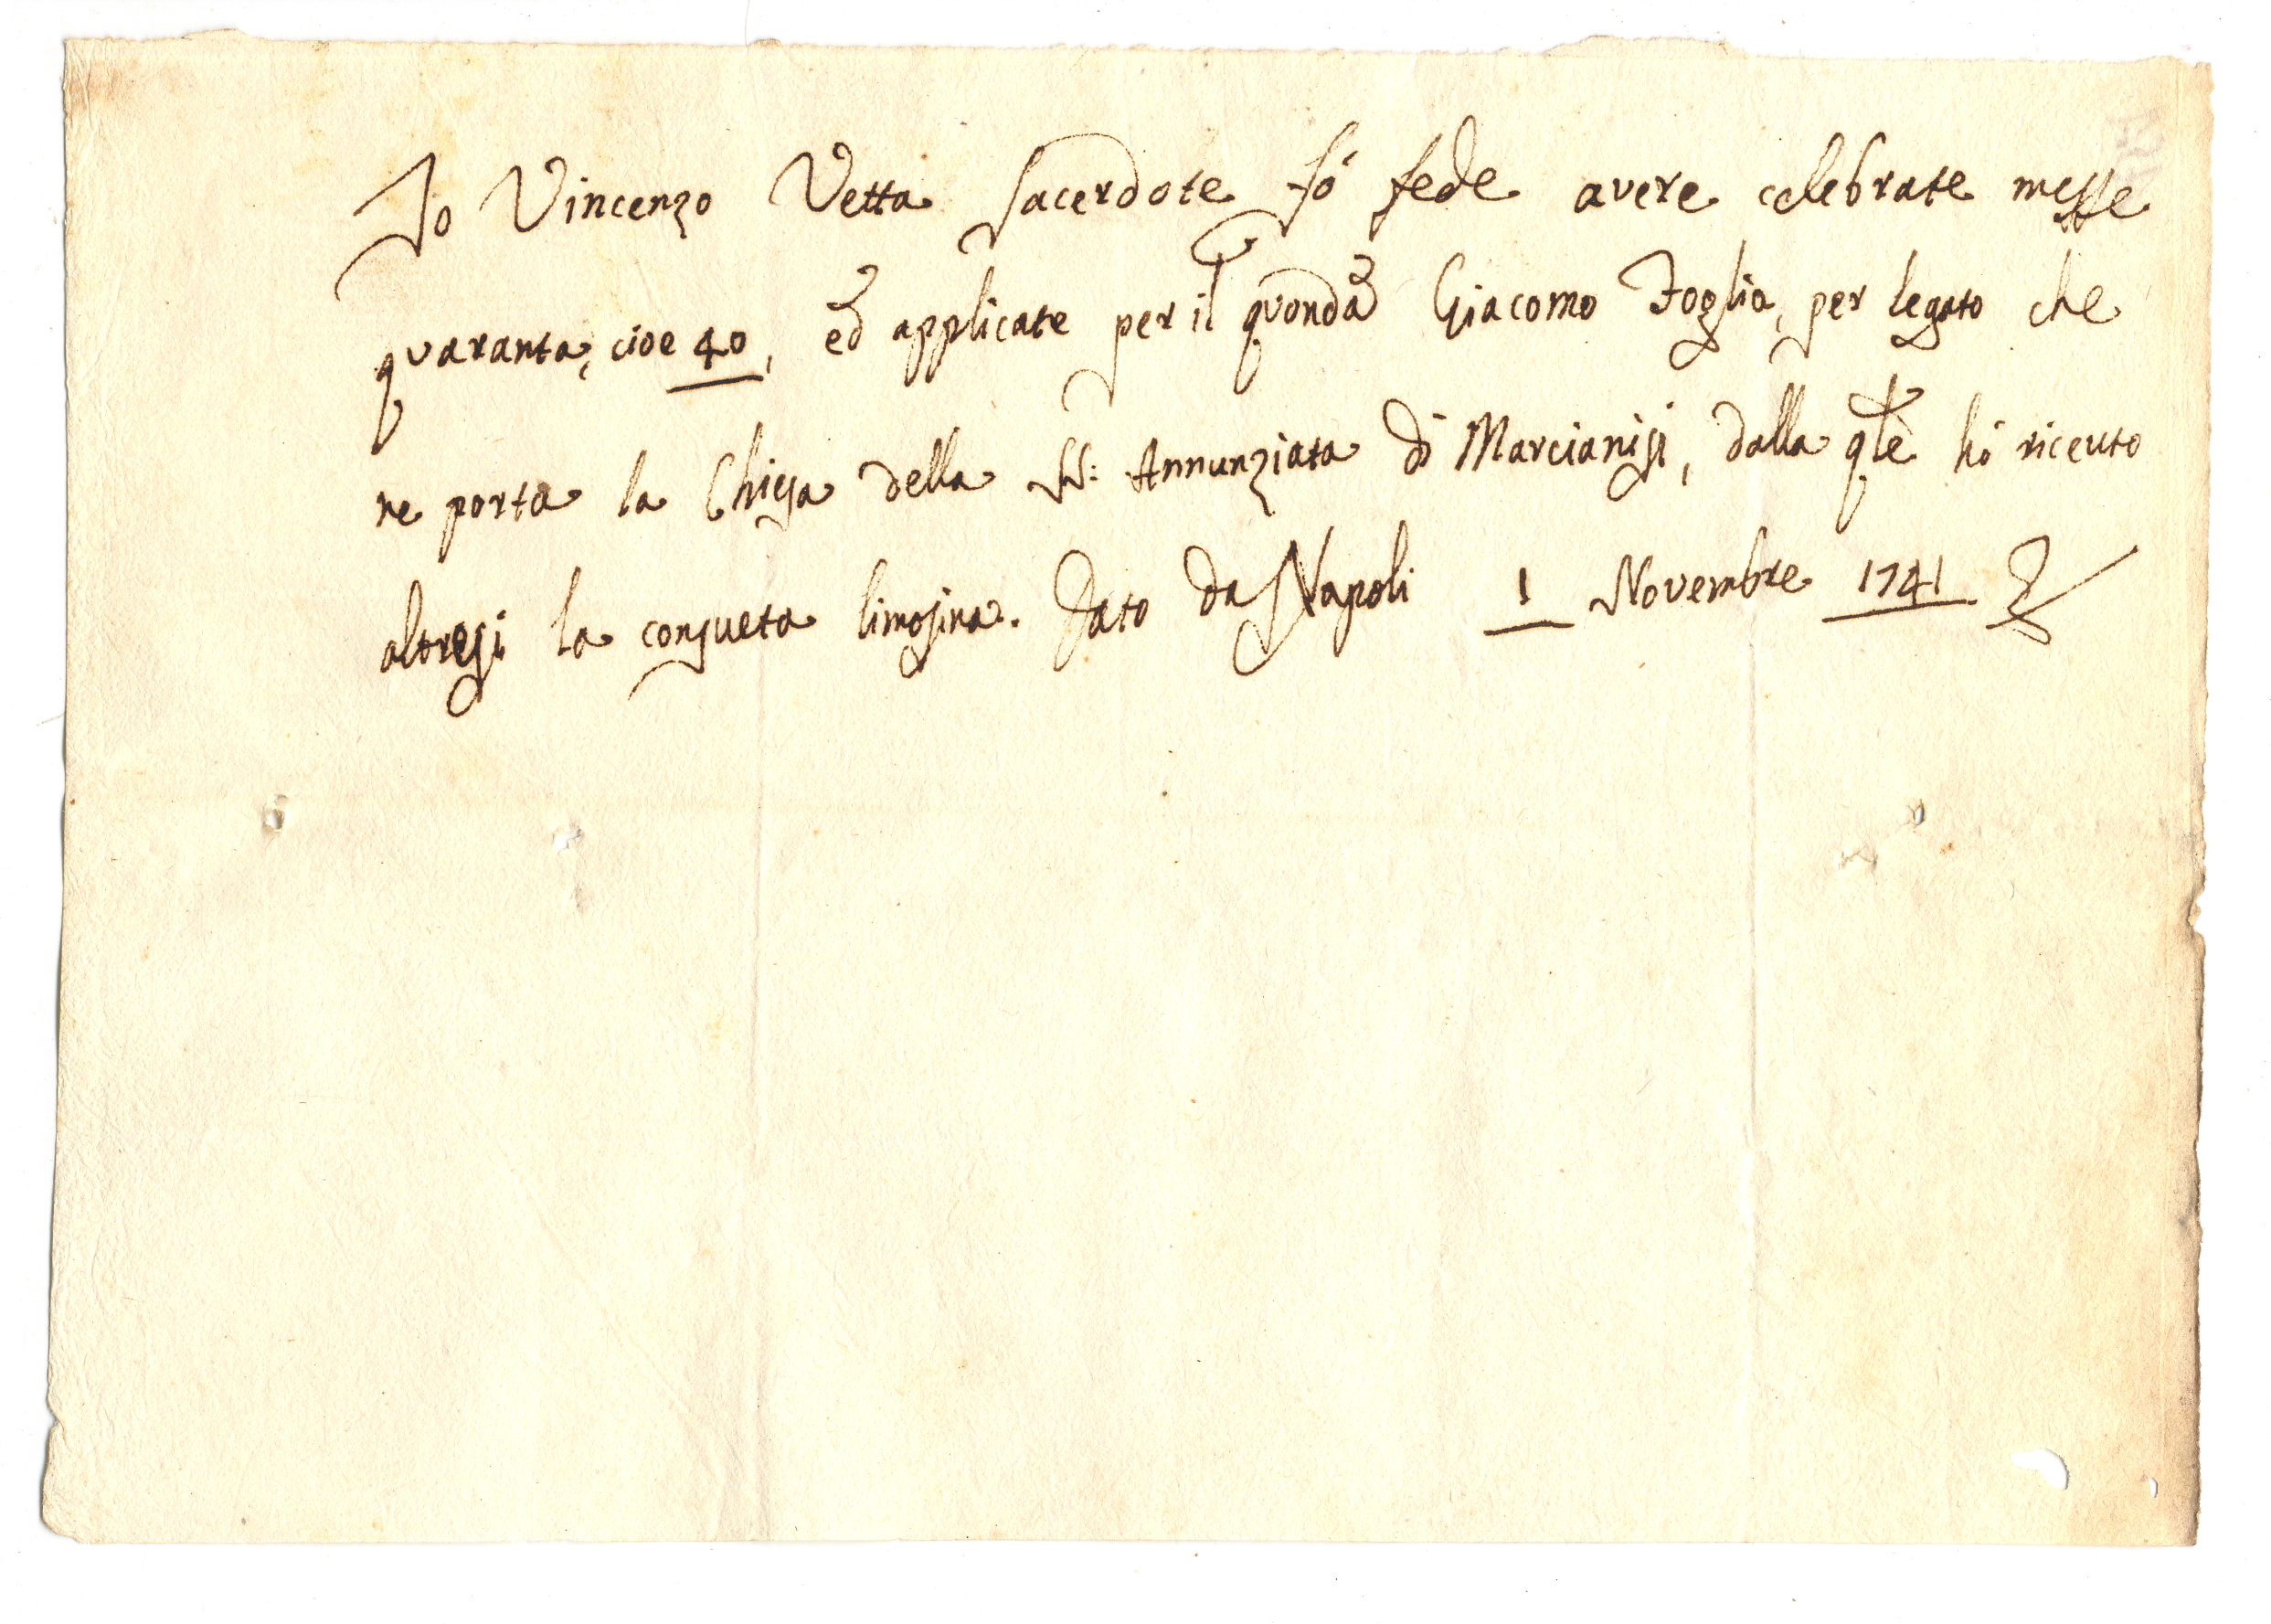 Io Vincenzo Vetta Sacerdote fò fede avere celebrate messe
quaranta, cioe 40, ed applicate per il quondã Giacomo Foglia, per legato che
ne porta la Chiesa della SS: Annunziata di Marcianisi, dalla qle hò riceuto
altresi la consueta limosina. Dato da Napoli 1 Novembre 1741